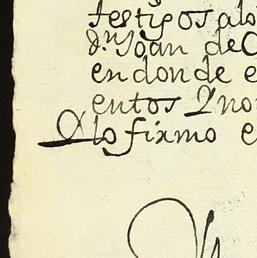 testigos alo
d.n Joan de C
en donde e
entos y no
Y lo firmo e